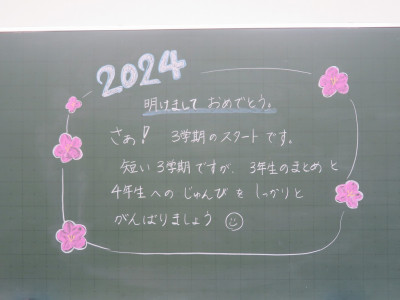 2024
明けまして おめでとう。
さぁ! 3学期のスタートです。
短い3学期ですが、3年生のまとめと
4年生への じゅんびを しっかりと
がんばりましょう